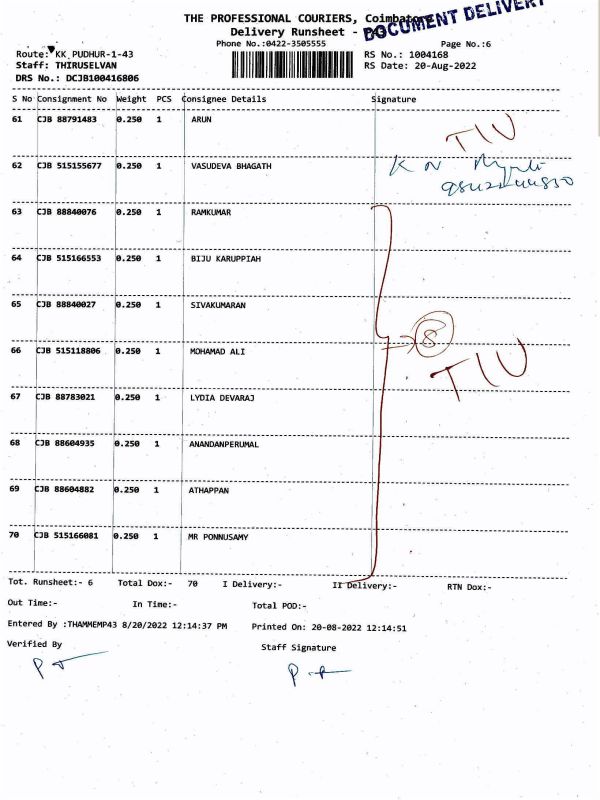 THE PROFESSIONAL COURIERS, Coimbatore
DOCUMENT DELIVERY
Delivery Runsheet -
Phone No.:0422-3505555
Page No.:6
Route: KK PUDHUR-1-43
RS No.: 1004168
Staff: THIRUSELVAN
RS Date: 20-Aug-2022
DRS No.: DCJB100416806
S No Consignment No Weight PCS Consignee Details Signature
61 CJB 88791483 0.250 1 ARUN
TIV
62 CJB 515155677 0.250 1 VASUDEVA BHAGATH
K N
63 CJB 88840076 0.250 1 RAMKUMAR
64 CJB 515166553 0.250 1 BIJU KARUPPIAH
65 CJB 88840027 0.250 1 SIVAKUMARAN
8
66 CJB 515118806 0.250 1 MOHAMAD ALI
TIV
67 CJB 88783021 0.250 1 LYDIA DEVARAJ
68 CJB 88604935 0.250 1 ANANDANPERUMAL
69 CJB 88604882 0.250 1 ATHAPPAN
70 CJB 515166081 0.250 1 MR PONNUSAMY
Tot. Runsheet:- 6 Total Dox:- 70 I Delivery:- II Delivery:- RTN Dox:-
Out Time:- In Time:- Total POD:-
Entered By :THAMMEMP43 8/20/2022 12:14:37 PM Printed On: 20-08-2022 12:14:51
Verified By Staff Signature